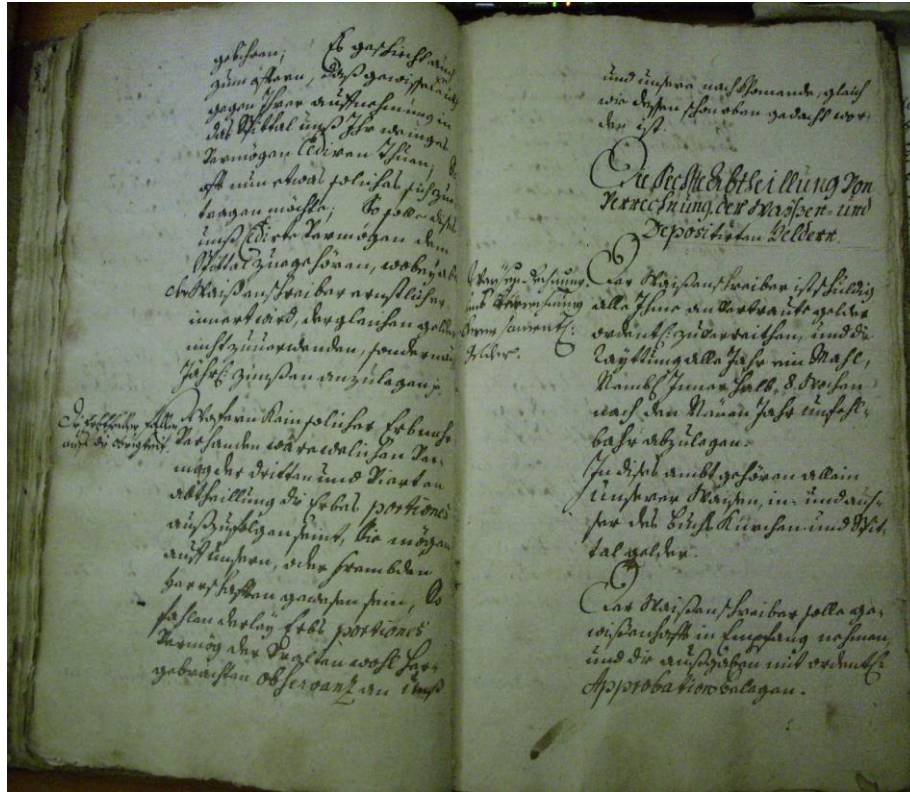 gebühren; Es geschicht auch
zum öfftern, daß gewisse
gegen Ihrer auffnehmung in
das Spittal unß Ihr weniges
Vermögen Cediren Thuen,
offt nun etwas solches sich zue
tragen möchte; So solle diß
unß Cedirte Vermögen dem
Spittal zuegehören, wobey
der Waißenschreiber ernstlich er
innert wird, dergleichen gelder
nicht zuuerwenden, sondern
Jährl: zinßen anzulegen
Die Erbtheiler fallen
auf die Obrigkeit.
Wofern Kein solcher Erbnehm
Verhanden wäre welichen Ver-
mög der dritten und Vierten
abtheillung die Erbs portiones
außzufolgen seint, Sie mögen
auff unsern, oder frembden
Herrschafften gewesen sein, So
fahlen derley Erbs portiones
Vermög der Vralten wohl her-
gebrachten observantz an unß
und unsere nachkhomende, gleich
wie dessen schon oben gedacht wor-
den ist.
Die Sechste Abtheillung Von
Verrechnung der Waißen- und
Depositirten Geldern.
Waysen Rechnung
und Verrechnung
deren sament:
Gelder.
Der Waißenschreiber ist schuldig
alle Ihme anvertraute gelder
ordentl: zuverreithen, und die
Rayttung alle Jahr ein Mahl,
Nembl: Inner halb, 8. Wochen
nach den Neuen Jahr unfehl-
bahr abzulegen.
In dises ambt gehören allein
Unserer Waisen, in- und aus-
ser des Kürchen- und Spit-
tal gelder.
Der Waißenschreiber solle ge-
wissenhafft in Empfang nehmen,
und die außgaben mit ordentl:
Approbation belegen.